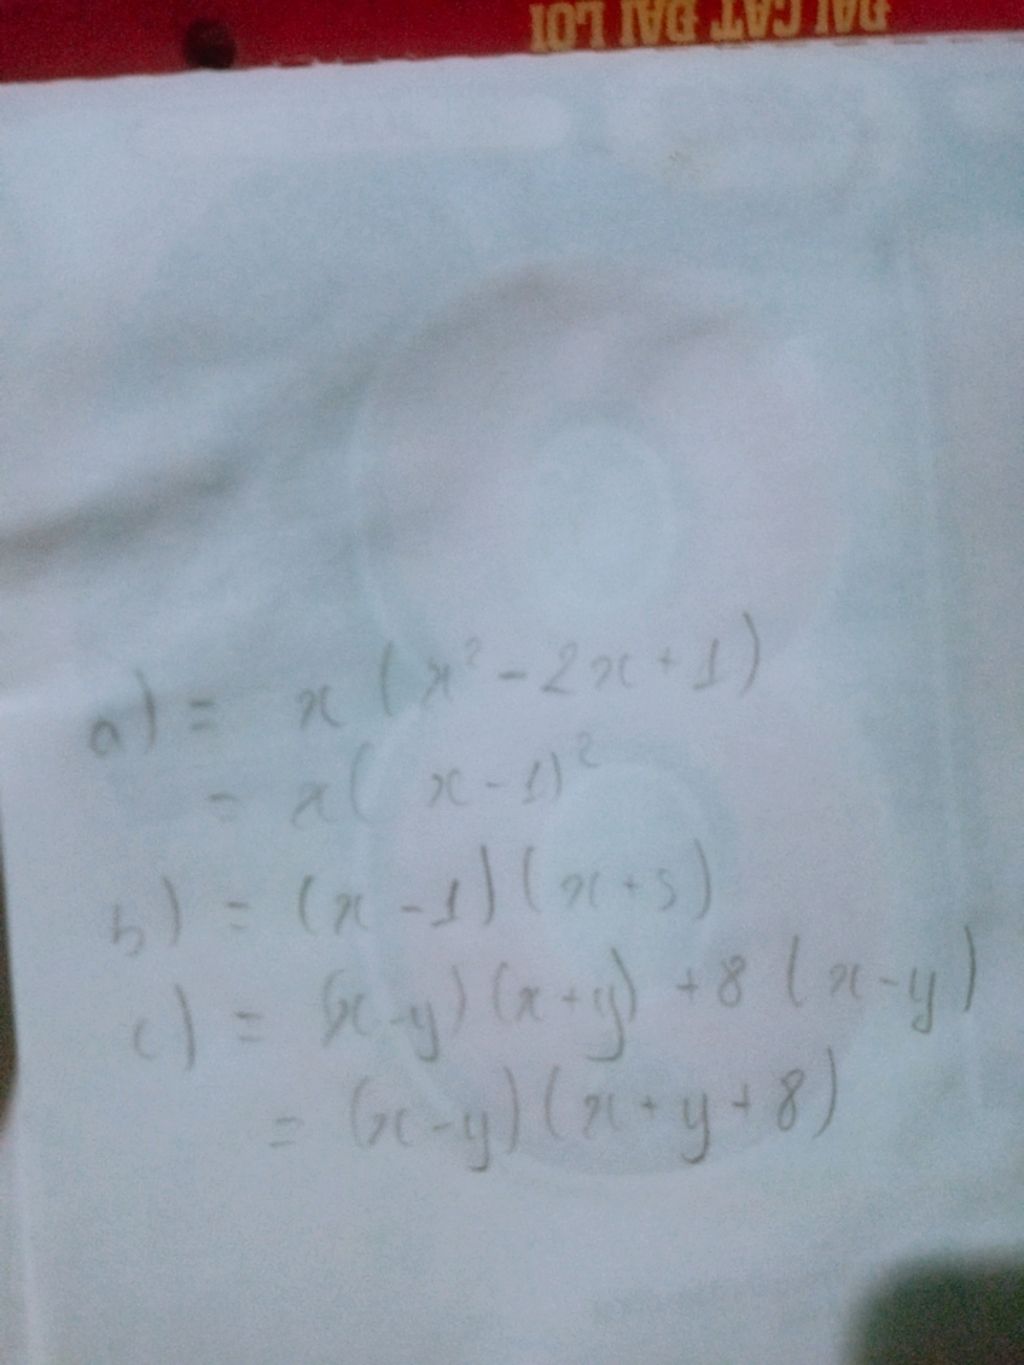 ĐẠI CÁT ĐẠI LỢI
a) = x (x² - 2x + 1)
= x( x - 1)²
b) = (x - 1)(x + 5)
c) = (x - y)(x + y) + 8 (x - y)
= (x - y)(x + y + 8)